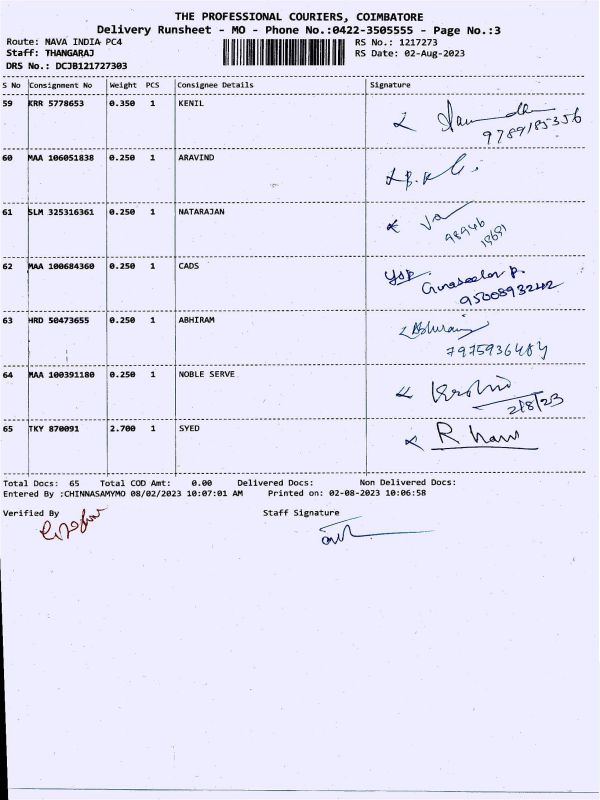 THE PROFESSIONAL COURIERS, COIMBATORE
Delivery Runsheet - MO - Phone No.:0422-3505555 - Page No.:3
Route: NAVA INDIA PC4 RS No.: 1217273
Staff: THANGARAJ RS Date: 02-Aug-2023
DRS No.: DCJB121727303
S No Consignment No Weight PCS Consignee Details Signature
59 KRR 5778653 0.350 1 KENIL
9789185356
60 MAA 106051838 0.250 1 ARAVIND
61 SLM 325316361 0.250 1 NATARAJAN
98946
62 MAA 100684360 0.250 1 CADS
Gunaseelan P.
63 HRD 50473655 0.250 1 ABHIRAM
Abhiram
7975936484
64 MAA 100391180 0.250 1 NOBLE SERVE
2/8/23
65 TKY 870091 2.700 1 SYED
Total Docs: 65 Total COD Amt: 0.00 Delivered Docs: Non Delivered Docs:
Entered By :CHINNASAMYMO 08/02/2023 10:07:01 AM Printed on: 02-08-2023 10:06:58
Verified By Staff Signature